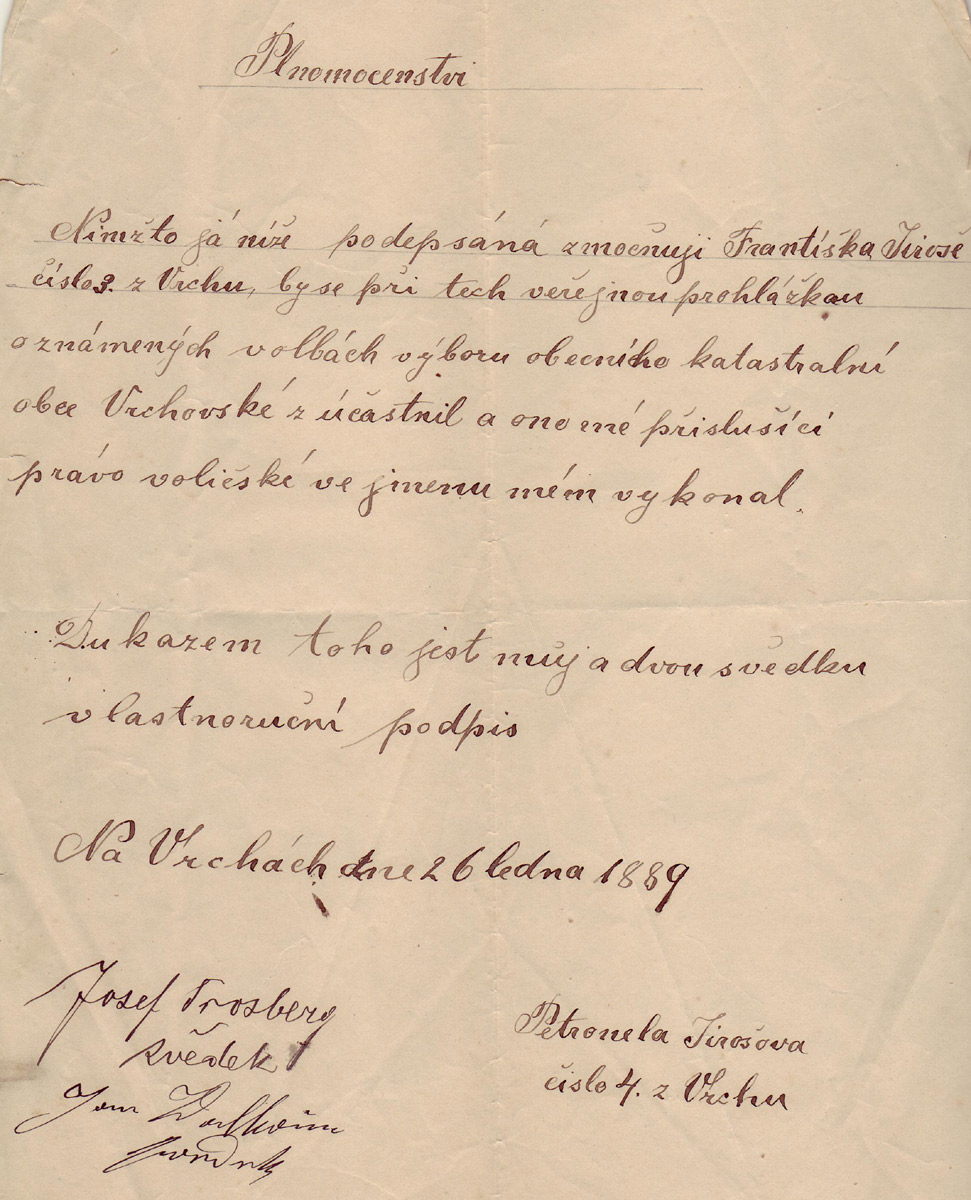 Plnomocenstvi
Nimžto já níže podepsáná zmočnuji Františka Jiroše
číslo 3. z Vrchu, by se při tech veřejnou prohláškau
oznámených volbách výboru obecního katastralní
obce Vrchovské z účastnil a ono mé přislušící
právo voličské ve jmenu mém vykonal.
Dukazem toho jest můj a dvou svědku
vlastnoruční podpis
Na Vrchách dne 26 ledna 1889
Josef Trosberg
svědek
Petronela Jirošova
čislo 4. z Vrchu
Jan